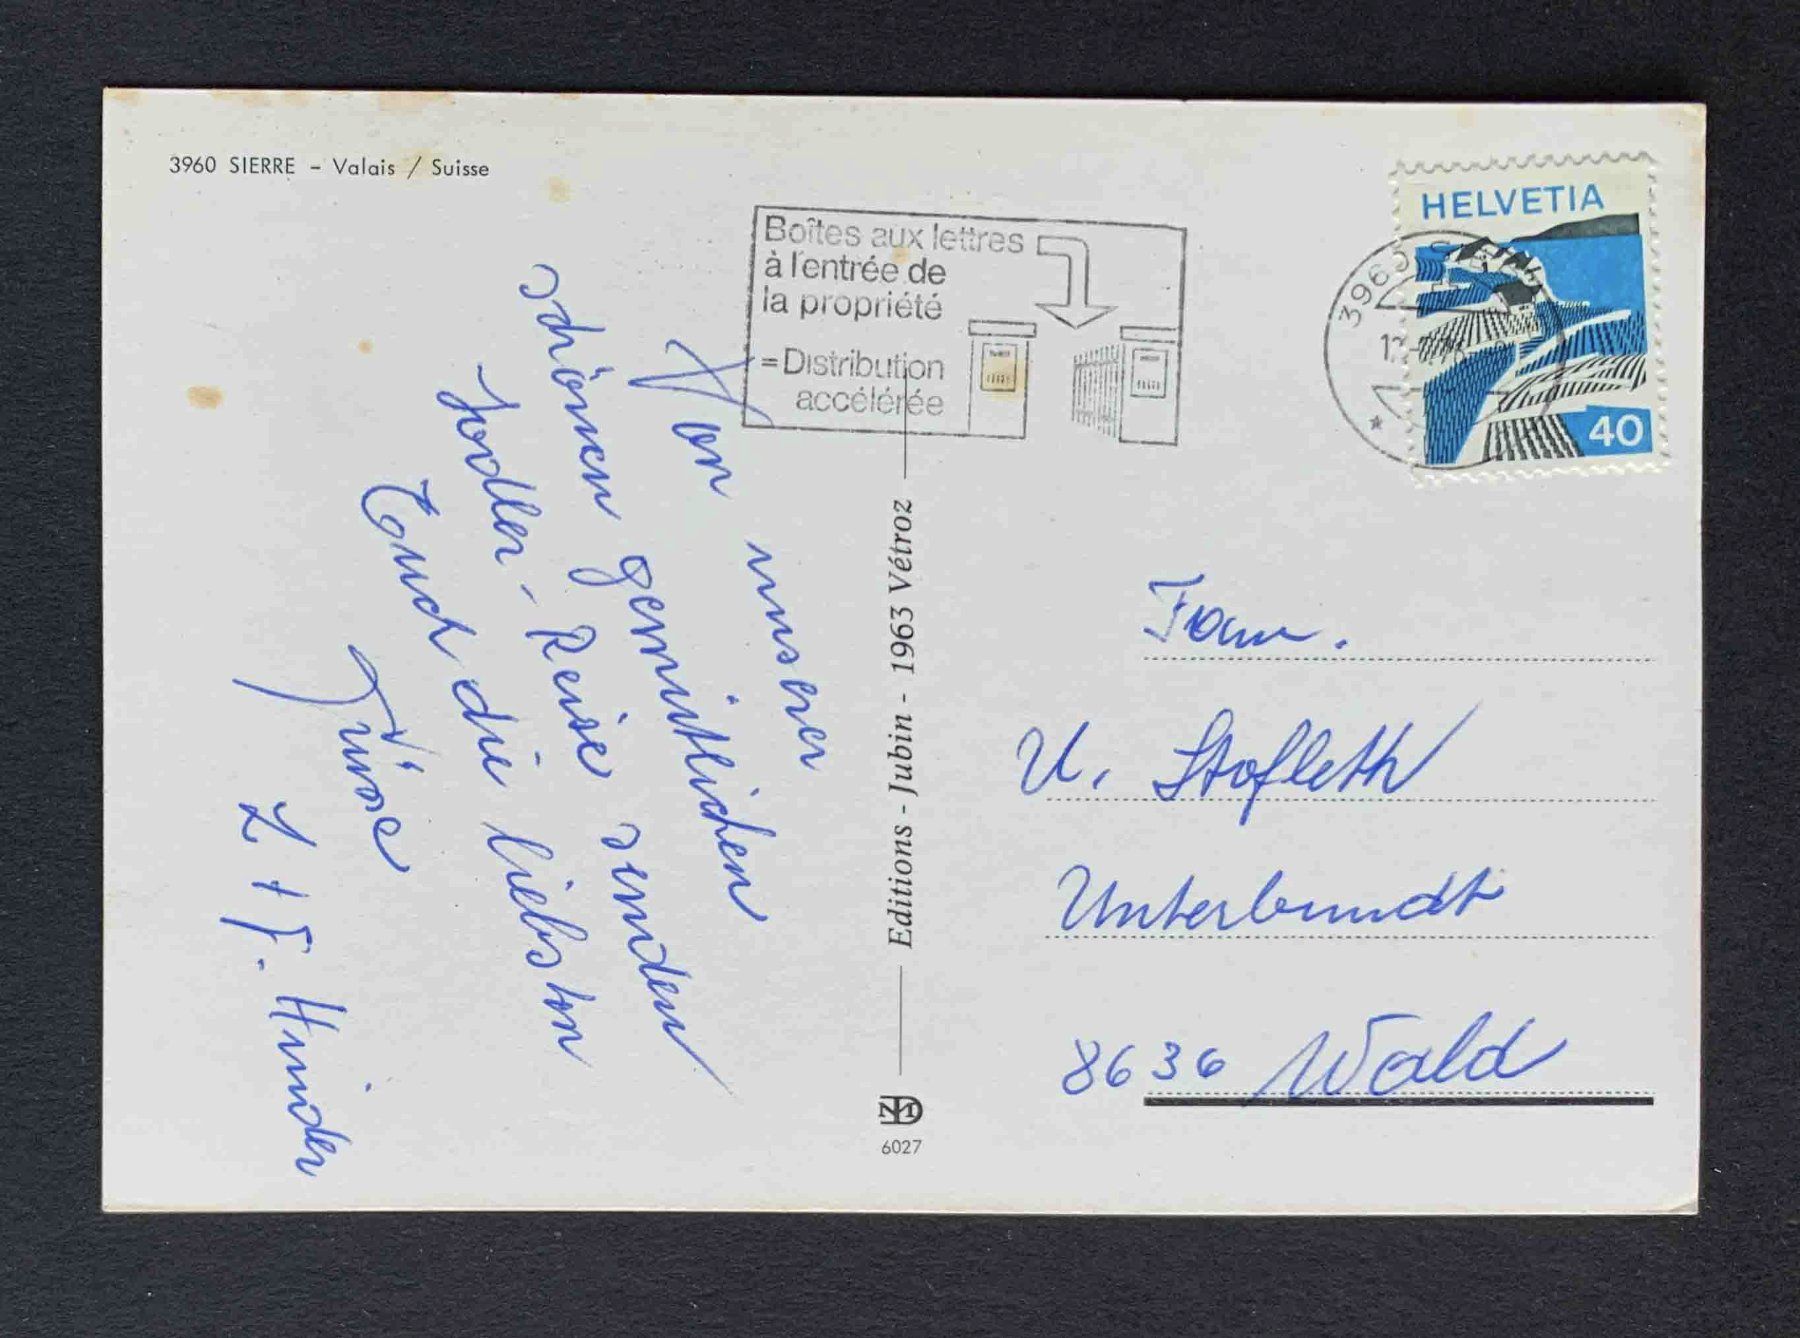 3960 SIERRE – Valais / Suisse
Boîtes aux lettres
à l'entrée de
la propriété
= Distribution
accélérée
HELVETIA
40
3960
Von unser
schönen gemütlichen
Jodler-Reise senden
Euch die liebsten
Grüsse
F. Hinder
Editions - Jubin - 1963 Vétroz
6027
Fam.
U. Stofleth
Unterbundt
8636 Wald